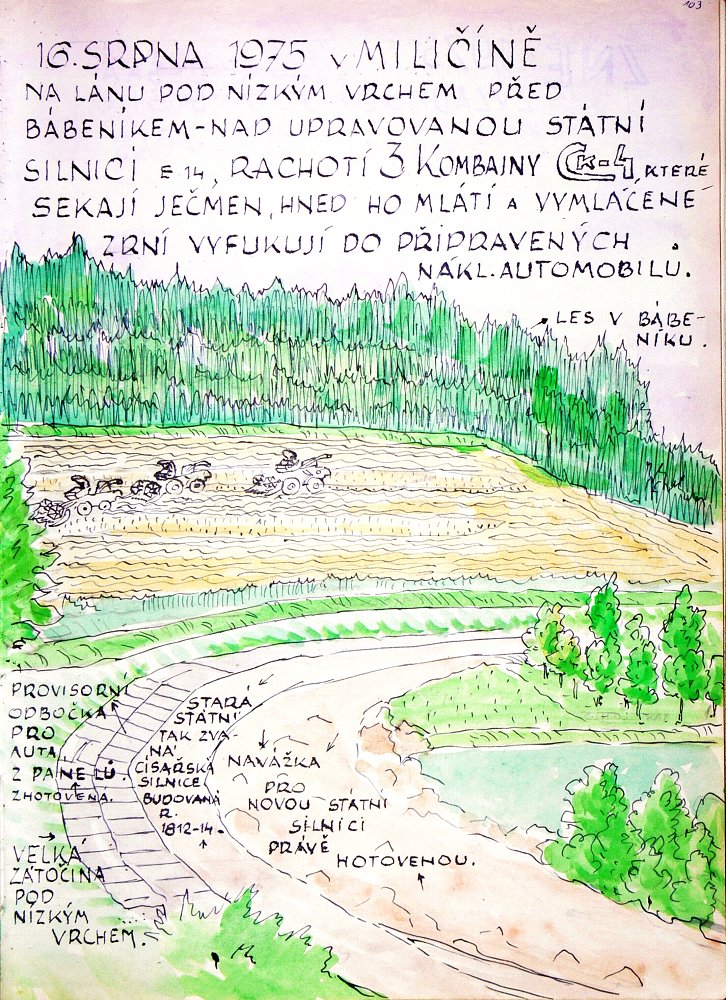 103
16. SRPNA 1975 v MILIČÍNĚ
NA LÁNU POD NÍZKÝM VRCHEM PŘED
BÁBENÍKEM-NAD UPRAVOVANOU STÁTNÍ
SILNICÍ E 14, RACHOTÍ 3 KOMBAJNY SK-4, KTERÉ
SEKAJÍ JEČMEN, HNED HO MLÁTÍ A VYMLÁCENÉ
ZRNÍ VYFUKUJÍ DO PŘIPRAVENÝCH
NÁKL. AUTOMOBILU.
LES V BÁBE-
NÍKU.
PROVISORNÍ
ODBOČKA
PRO
AUTA
Z PANELŮ.
ZHOTOVENA.
STARÁ
STÁTNÍ
TAK ZVA-
NÁ
CÍSAŘSKÁ
SILNICE
BUDOVANÁ
R.
1812-14.
NAVÁŽKA
PRO
NOVOU STÁTNÍ
SILNICI
PRÁVĚ
HOTOVENOU.
VELKÁ
ZÁTOČINA
POD
NÍZKÝM
VRCHEM.